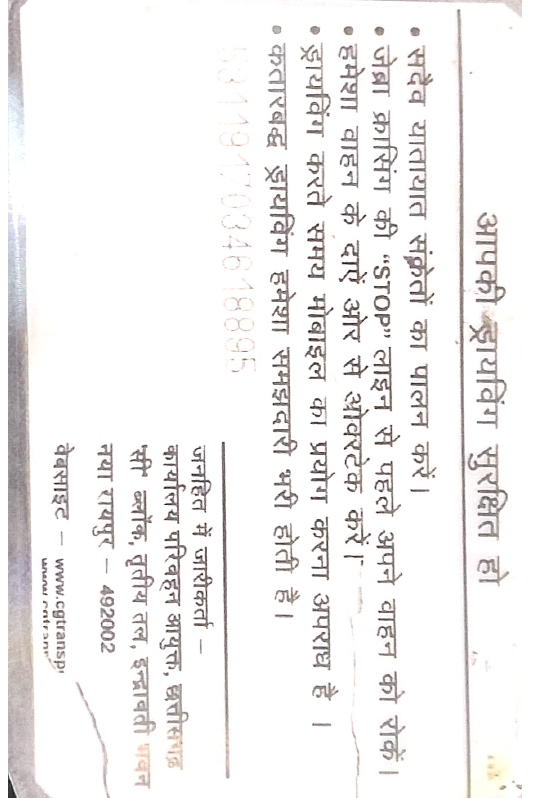 आपकी ड्रायविंग सुरक्षित हो
• सदैव यातायात संकेतों का पालन करें।
• जेब्रा क्रासिंग की “STOP” लाइन से पहले अपने वाहन को रोकें।
• हमेशा वाहन के दाऐं ओर से ओवरटेक करें।
• ड्रायविंग करते समय मोबाइल का प्रयोग करना अपराध है ।
• कतारबद्ध ड्रायविंग हमेशा समझदारी भरी होती है।
जनहित में जारीकर्ता –
कार्यालय परिवहन आयुक्त, छत्तीसगढ़
'सी' ब्लॉक, तृतीय तल, इन्द्रावती भवन
नया रायपुर – 492002
वेबसाइट – www.cgtransp